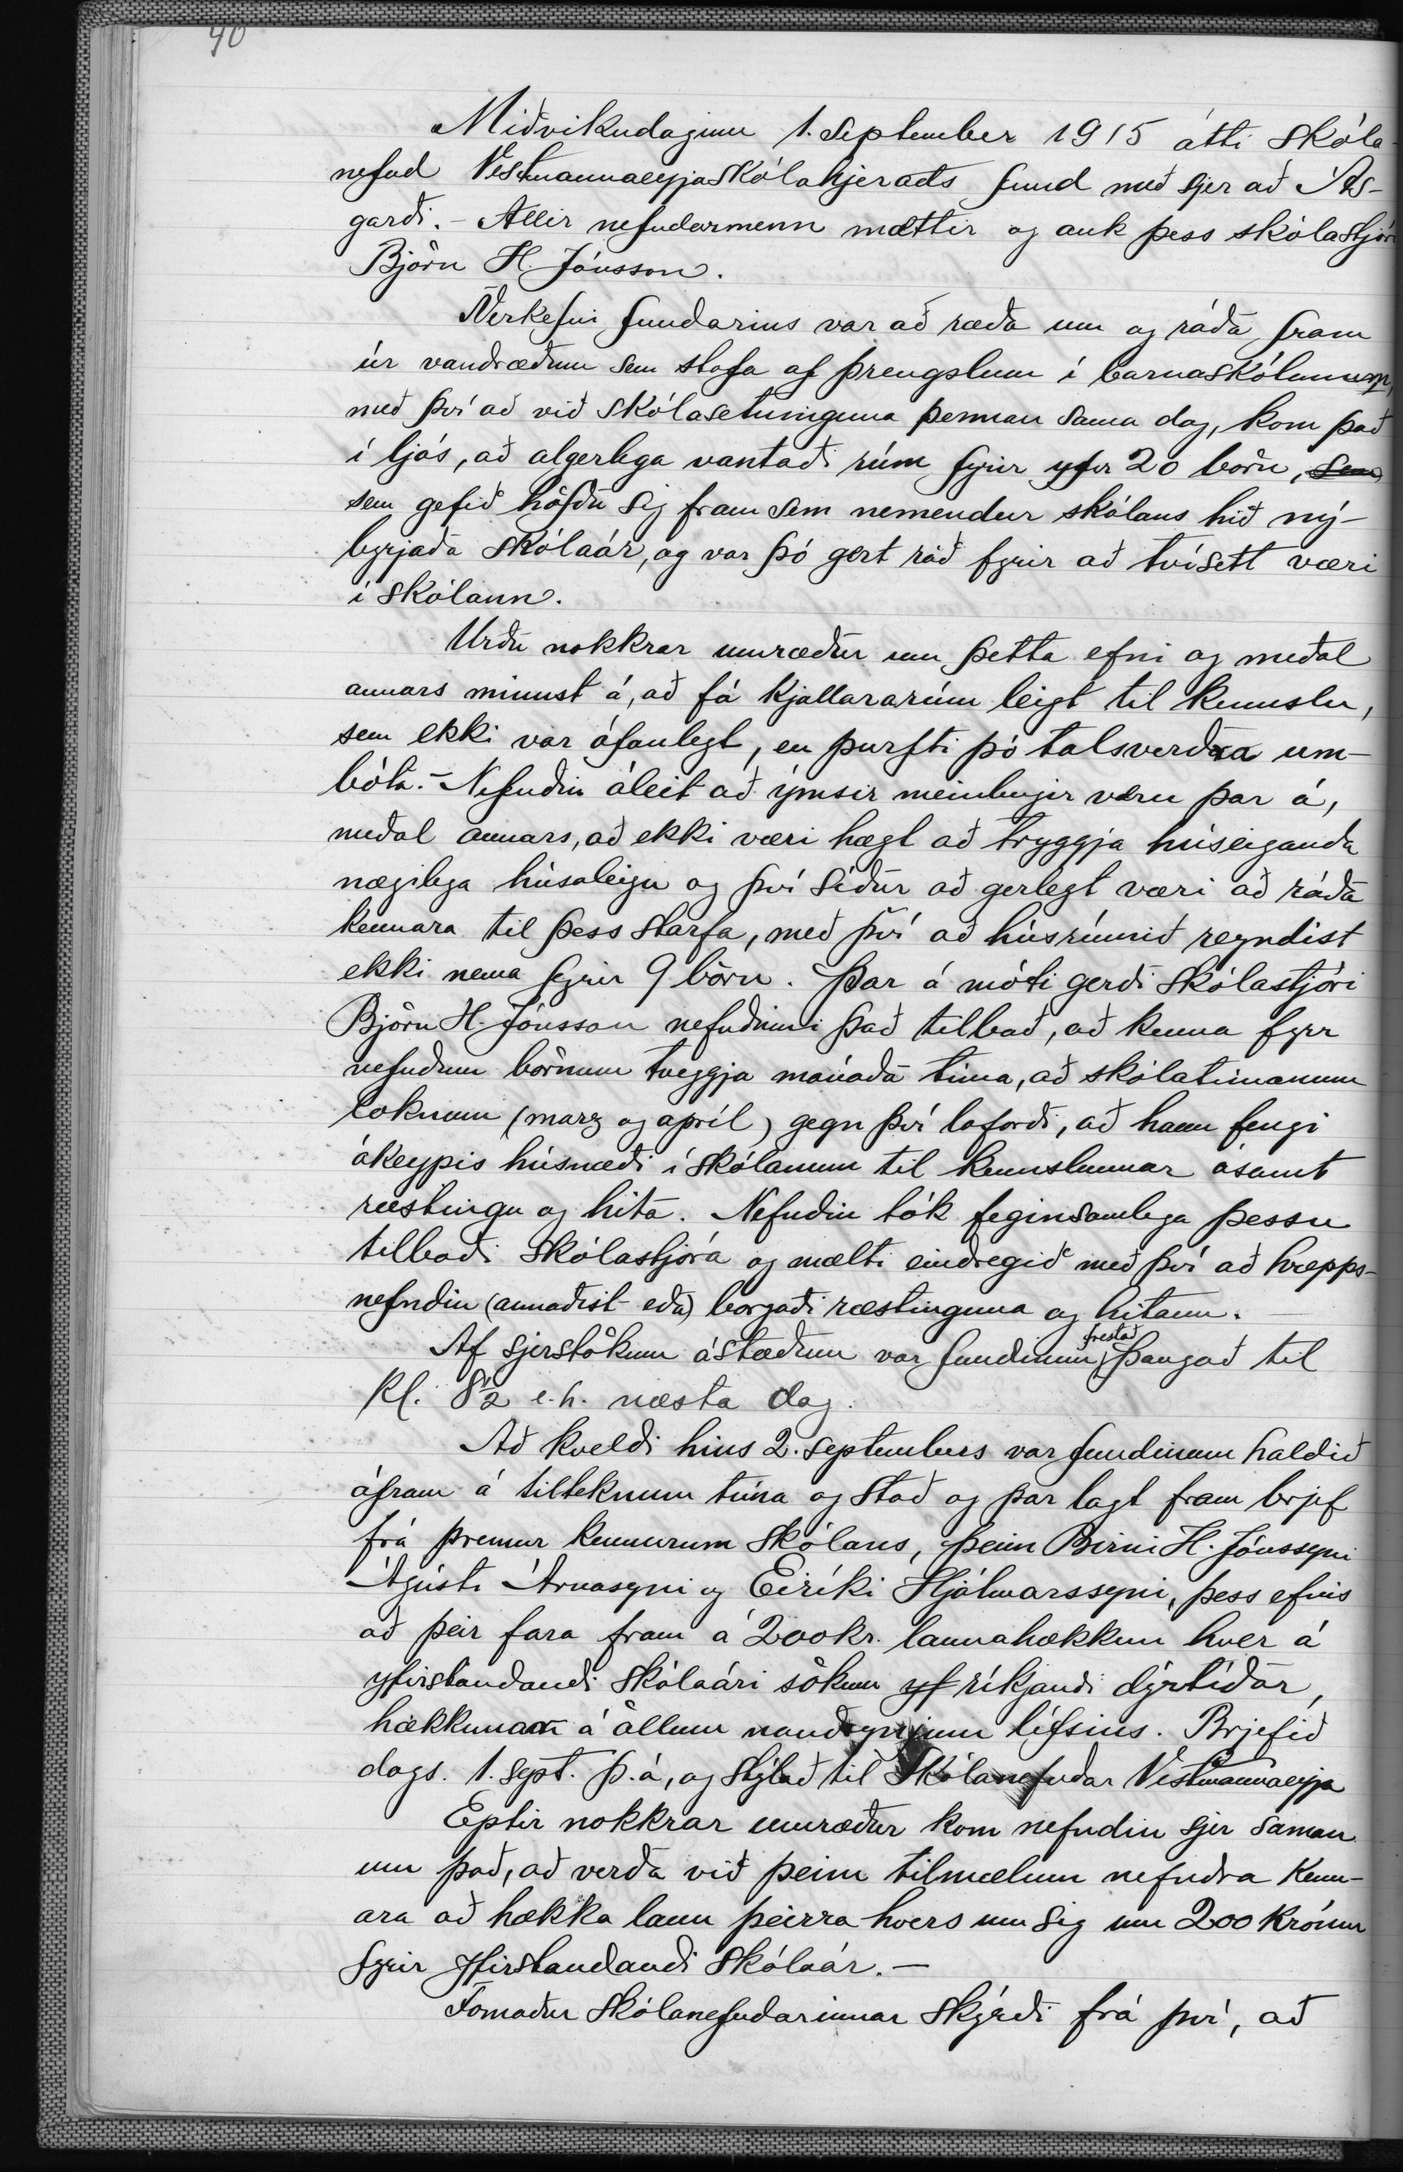 40
Miðvikudaginn 1. September 1915 átti skóla-
nefnd Vestmannaeyjaskólahjeraðs fund með sjer að Ás-
garði. – Allir nefndarmenn mættir og auk þess skólastjóri
Björn H. Jónsson.
Verkefni fundarins var að ræða um og ráða fram
úr vandræðum sem stafa af þrengslum í barnaskólanum,
með því að við skólasetninguna þennan sama dag, kom það
í ljós, að algerlega vantaði rúm fyrir yfir 20 börn, sem
sem gefið höfðu sig fram sem nemendur skólans hið ný-
byrjaða skólaár, og var þó gert ráð fyrir að tvísett væri
í skólann.
Urðu nokkrar umræður um þetta efni og meðal
annars minnst á, að fá kjallararúm leigt til kennslu,
sem ekki var áfanlegt, en þurfti þó talsverðra um-
bóta. – Nefndin áleit að ýmsir meinbugir væru þar á,
meðal annars, að ekki væri hægt að tryggja húseiganda
nægilega húsaleigu og því síður að gerlegt væri að ráða
kennara til þess starfa, með því að húsrúmið reyndist
ekki nema fyrir 9 börn. Þar á móti gerði skólastjóri
Björn H. Jónsson nefndinni það tilboð, að kenna fyrr
nefndum börnum tveggja mánaða tíma, að skólatímanum
loknum (marz og apríl) gegn því loforði, að hann fengi
ókeypis húsnæði í skólanum til kennslunnar ásamt
ræstingu og hita. Nefndin tók feginsamlega þessu
tilboði skólastjóra og mælti eindregið með því að hrepps-
nefndin (annaðist eða) borgaði ræstinguna og hitann.
Af sjerstökum ástæðum var fundinum frestað þangað til
Kl. 8½ e.h. næsta dag.
Að kveldi hins 2. septembers var fundinum haldið
áfram á tilteknum tíma og stað og þar lagt fram brjef
frá þremur kennurum skólans, þeim Birni H. Jónssyni
Ágústi Árnasyni og Eiríki Hjálmarssyni, þess efnis
að þeir fara fram á 200 kr. launahækkun hver á
yfirstandandi skólaári sökum yf ríkjandi dýrtíðar,
hækkunar á öllum nauðsynjum lífsins. Brjefið
dags. 1. sept. þ.á, og stýlað til Skólanefndar Vestmannaeyja
Eptir nokkrar umræður kom nefndin sjer saman
um það, að verða við þeim tilmælum nefndra kenn-
ara að hækka laun þeirra hvers um sig um 200 krónur
fyrir yfirstandandi skólaár. –
Formaður skólanefndarinnar skýrði frá því, að